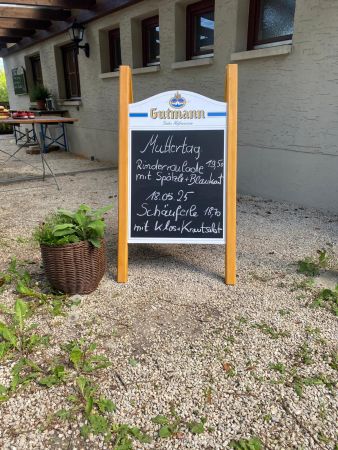 Gutmann
Muttertag
Rinderroulade 19,50
mit Spätzle + Blaukraut
18.05.25
Schäuferle 18,70
mit Klos + Krautsalat